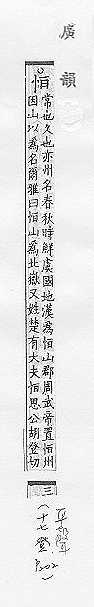 廣韻
恒
常也久也亦州名春秋時鮮虞國地漢為恒山郡周武帝置恒州
因山以為名爾雅曰恒山為北嶽又姓楚有大夫恒思公胡登切
三
平聲
十七登
P.202